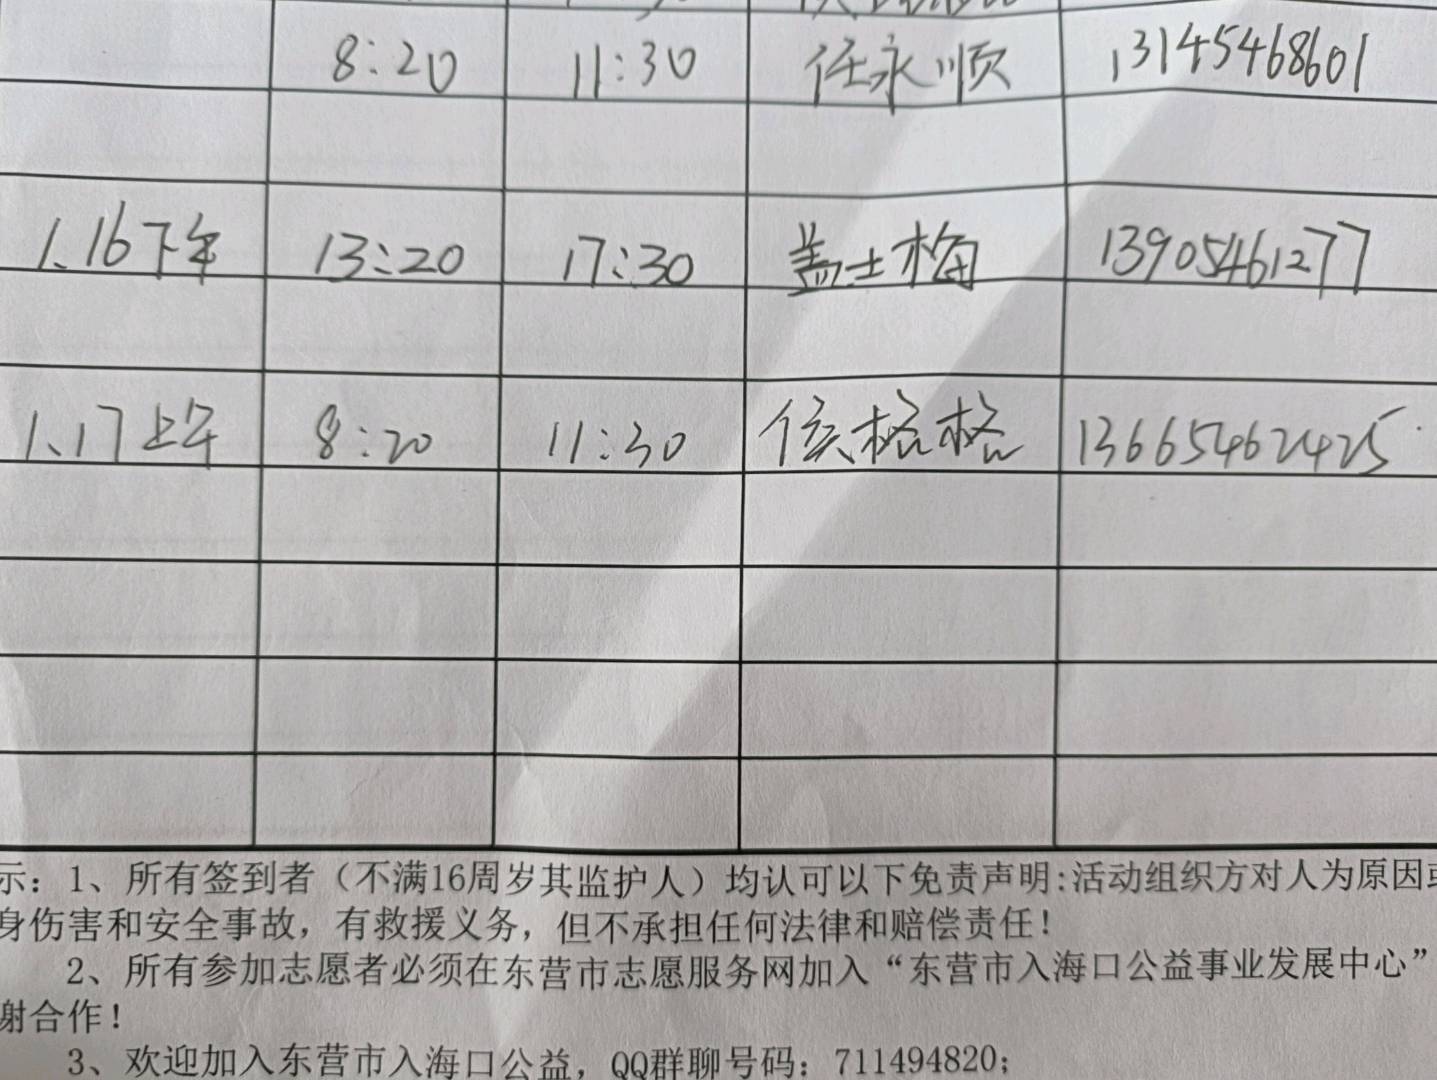 8:20 11:30 任永顺 13145468601
1.16下午 13:20 17:30 盖士梅 13905461277
1.17上午 8:20 11:30 侯格格 13665462425
示：1、所有签到者（不满16周岁其监护人）均认可以下免责声明:活动组织方对人为原因或
身伤害和安全事故，有救援义务，但不承担任何法律和赔偿责任！
2、所有参加志愿者必须在东营市志愿服务网加入“东营市入海口公益事业发展中心”
谢合作！
3、欢迎加入东营市入海口公益，QQ群聊号码：711494820；